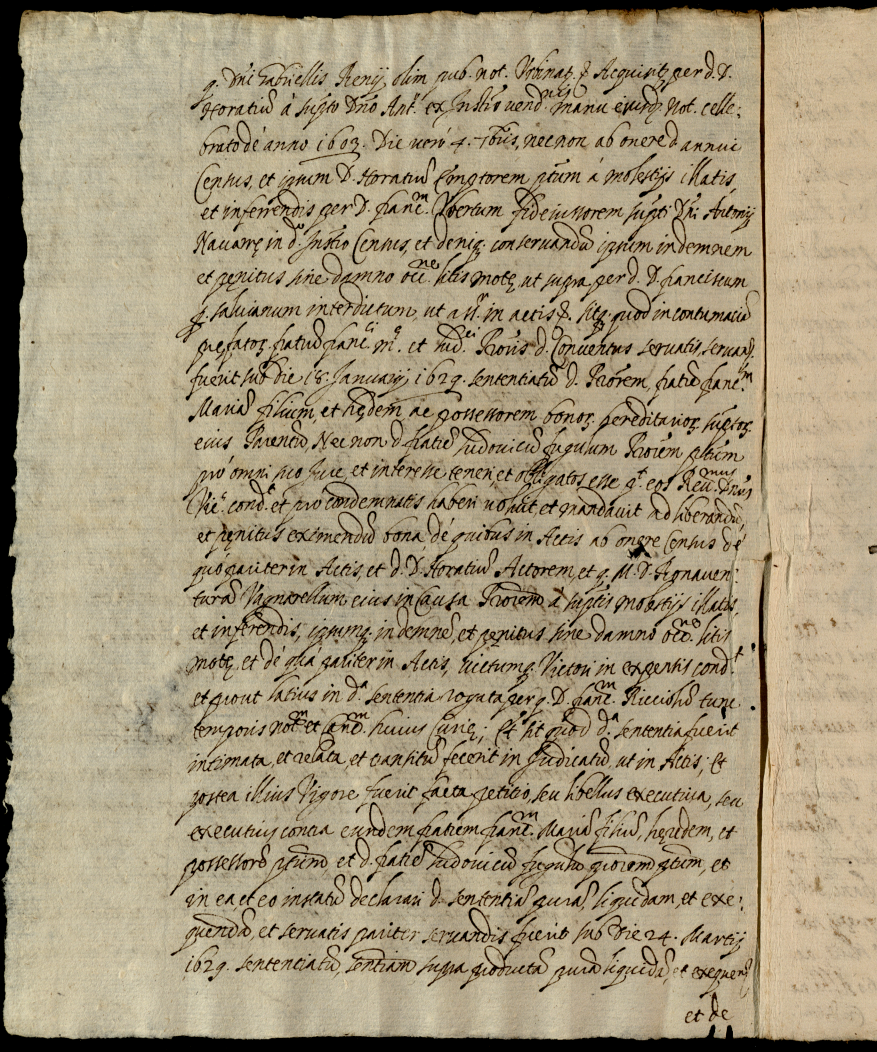 q. Dñi Gabriellis Renij olim pub. not. Urbinat. Acquisit. per d. D.
Horatiũ à supto Dño Ant.° ex Instro vend.nis manu eiusdẽ not. cele:
brato de anno 1603. Die verò 4. 7bris, nec non ab onere d. annui
Census, et ipsum D. Horatiũ Emptorem ptum à molestijs illatis,
et inferendis per D. franc.m Libertum fideiussorem supti Dñi Antonij
Navarrę in d.° Instro Census, et deniq; conservandũ ipsum indemnem
et pęnitus sine damno occ.ne litis motę, ut supra per d. D. franciscum
q. Salvianum interdictum, ut asr. in actis. sitq; quod in contumacia
pręfator. fratrũ franc.ci M.ę et Lud.ci Prioris d. Conventus servatis servand.
fuerit sub die 18. Januarij 1629. sententiatũ d. Priorem, fratrẽ franc.m
Mariã filium, et hęredem ac possessorem bonor. hereditarior. suptor.
eius Parentũ, Nec non d. fratrẽ Ludovicũ figulum Priorem ptum
prò omni suo Jure, et interesse teneri, et obligatos esse q.t eos Reu.mus Dñus
Vic.s cond.t et prò condemnatis haberi voluit, et mandavit ad liberandũ,
et pęnitus eximendũ bona de quibus in Actis ab onere Census de
quo pariter in Actis, et d. D. Horatiũ Actorem, et q. M. D. Bonaven:
turã Vagnarellum eius in Causa Priorem à suptis molestijs illatis,
et inferendis, ipsumq; indemnẽ, et pęnitus sine damno occ.ne litis
motę, et de qua pariter in Actis, victumq; Victori in expensis cond.t
et prout latius in d.a sententia rogata per q. D. franc.m Ricciolũ tunc
temporis not.m et Canc.m huius Curię; Et sit quod d.a sententia fuerit
intimata, et relata, et transitũ fecerit in Judicatũ, ut in Actis; Et
postea illius Vigore fuerit facta petitio, seu libellus executiva, seu
executivus contra eundem fratrem franc.m Mariã filiũ, hęredem, et
possessorẽ ptum et d. fratrẽ Ludovicũ figulũ priorem ptum, et
in ea, et eo instatũ declarari d. sententiã purã, liquidam, et exe:
quendã, et servatis pariter servandis fuerit sub Die 24. Martij
1629. sententiatũ, sentiam supra productã purã liquidã, et exequend.
et de